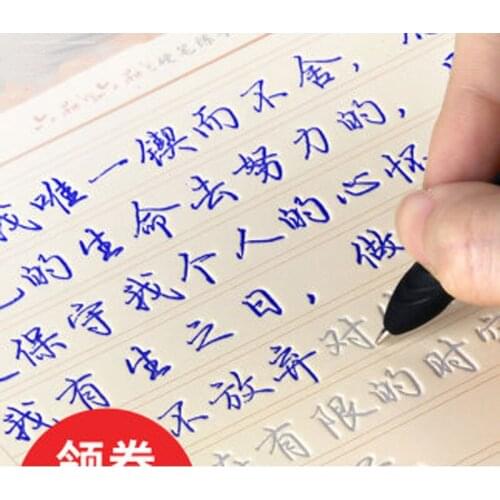 硬笔练
我唯一锲而不舍，
的生命去努力的，
保守我个人的心怀
我有生之日，做
不放弃对
有限的时
领券